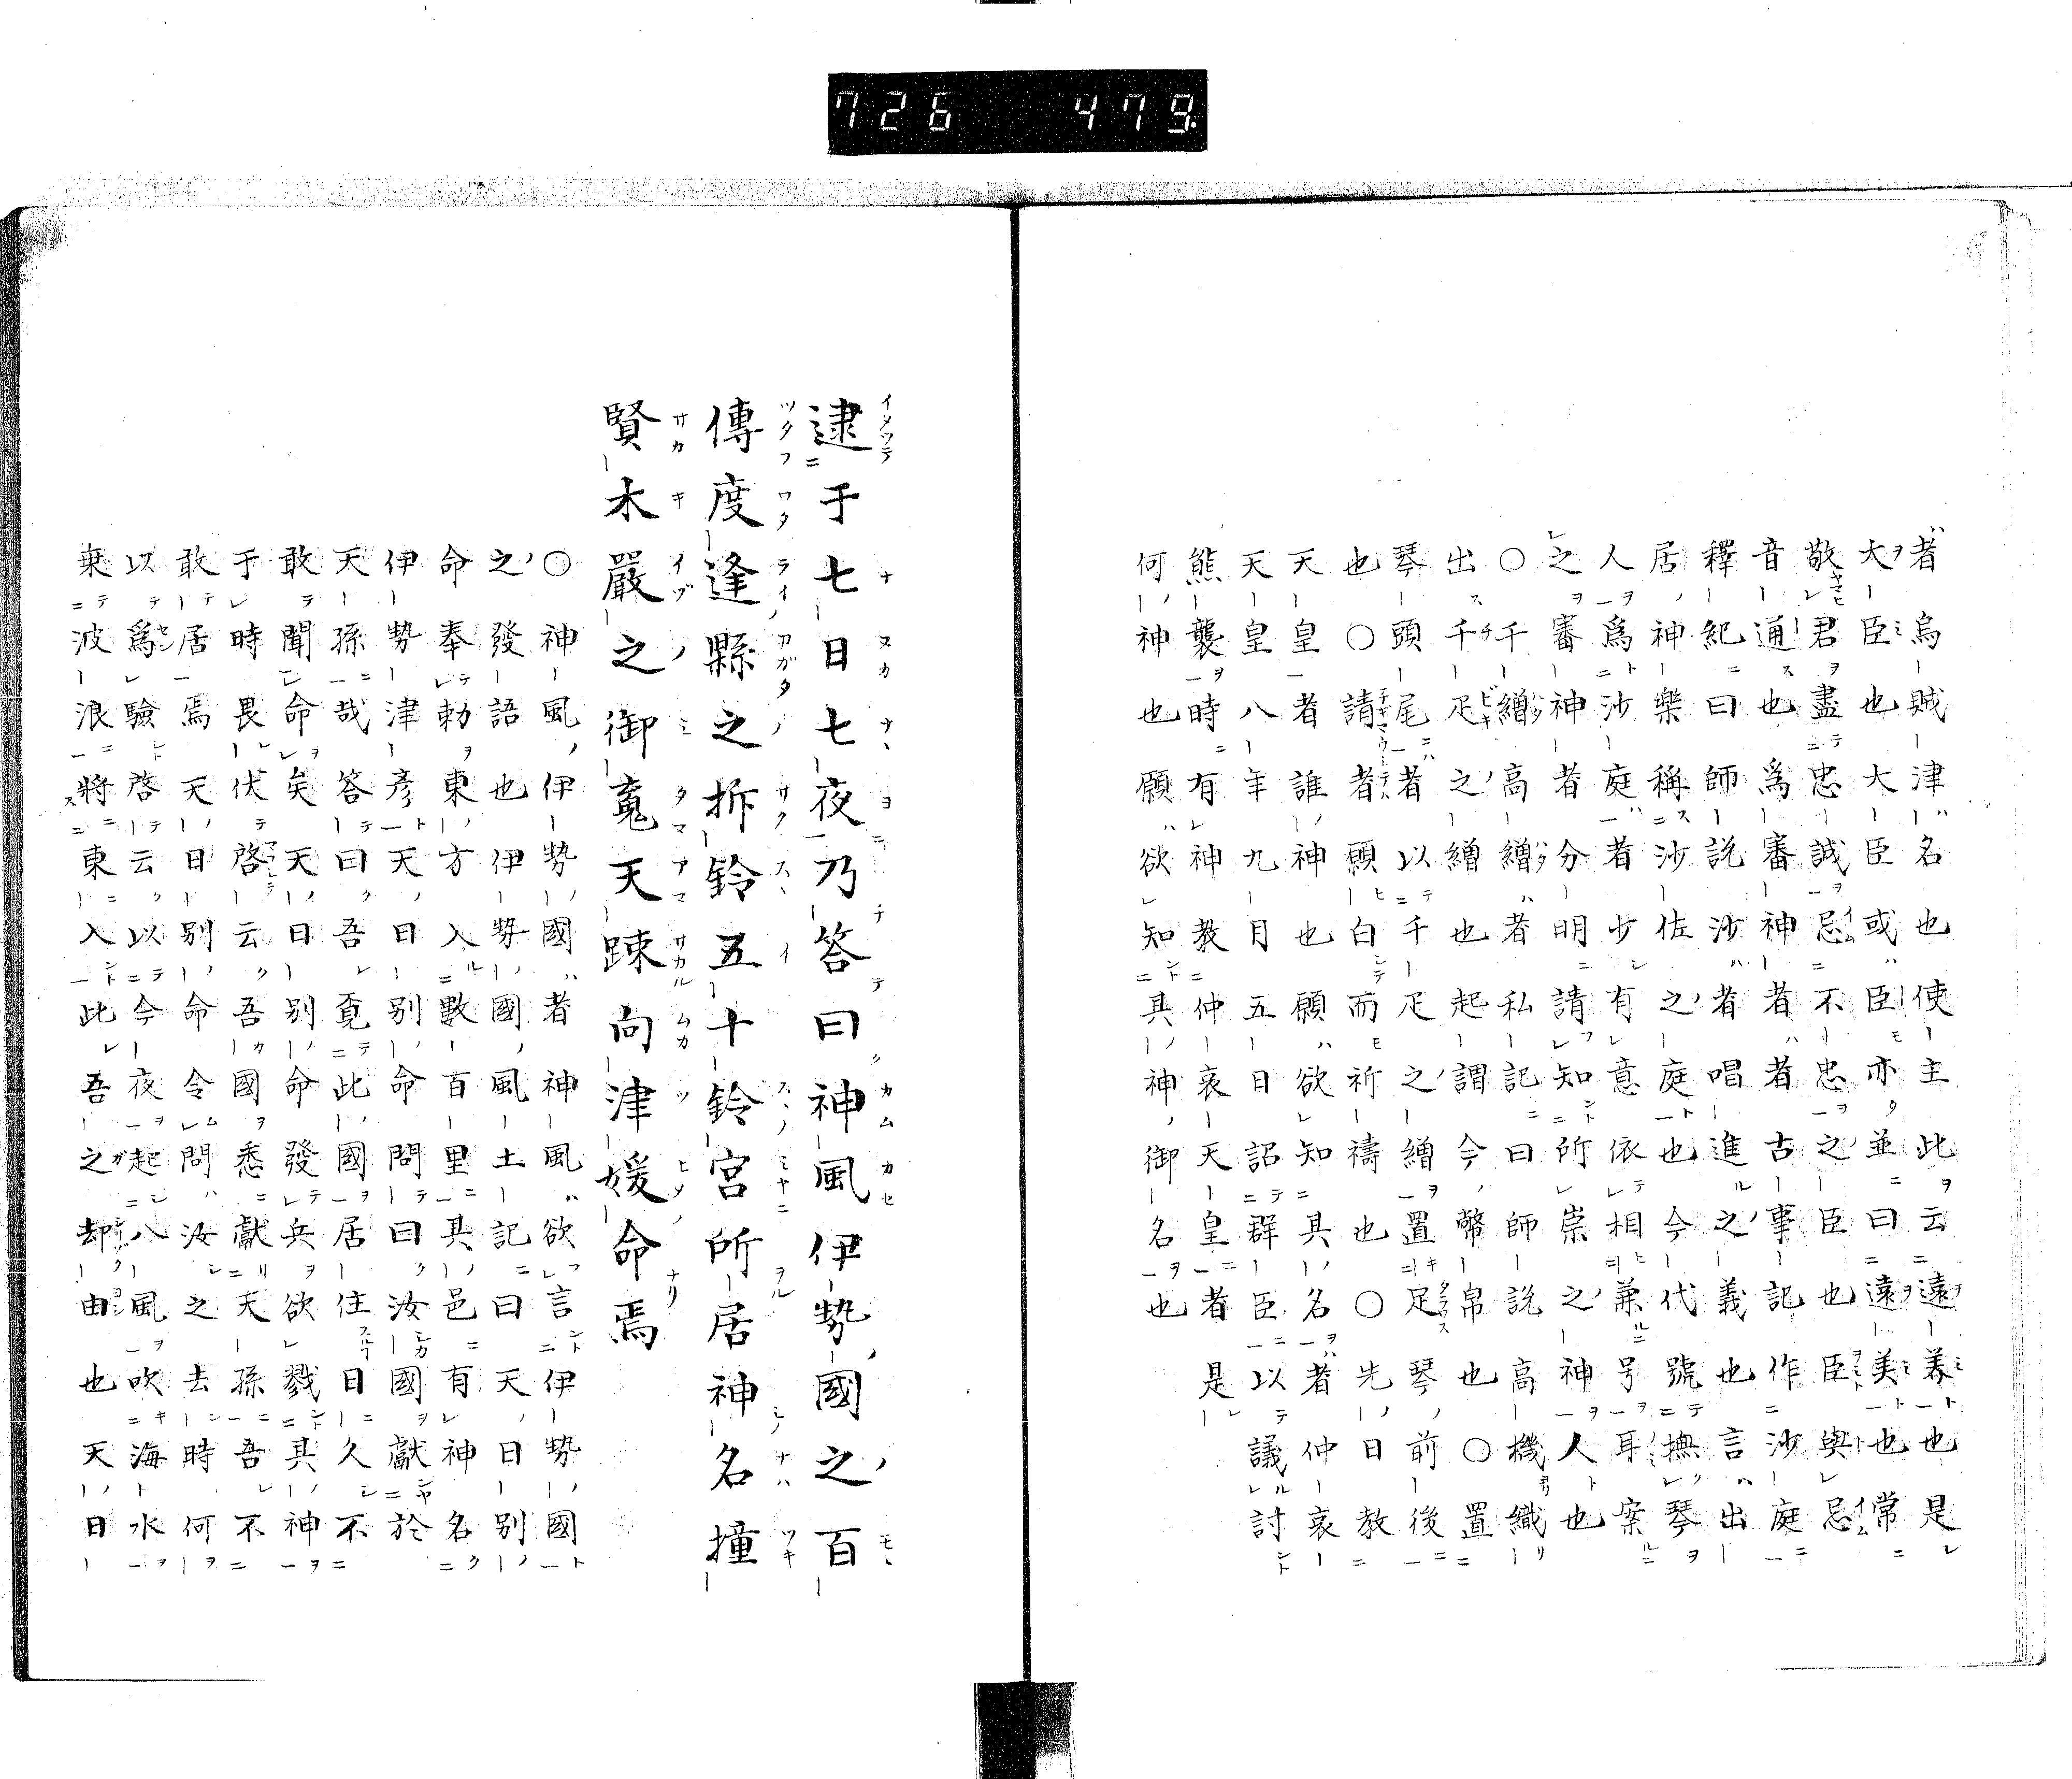 726 479
者烏賊津名也使主此云遠養也是
大臣也大臣或臣亦並曰遠美也常
敬君盡忠誠忌不忠之臣也臣與忌
音通也爲審神者者古事記作沙庭
釋紀曰師說沙者唱進之義也言出
居神樂稱沙佐之庭也今代號撫琴
人爲沙庭者少有意依相兼号耳案
之審神者分明請知所崇之神人也
○千繒高繒者私記曰師說高機織
出千疋之繒也起謂今幣帛也○置
琴頭尾者以千疋之繒置足琴前後
也○請者願白而祈禱也○先日教
天皇者誰神也願欲知其名者仲哀
天皇八年九月五日詔群臣以議討
熊襲時有神教仲哀天皇者是
何神也願欲知其神御名也
逮于七日七夜乃答曰神風伊勢國之百
傳度逢縣之拆鈴五十鈴宮所居神名撞
賢木嚴之御䰟天踈向津媛命焉
○神風伊勢國者神風欲言伊勢國
之發語也伊勢國風土記曰天日别
命奉勅東方入數百里其邑有神名
伊勢津彦天日别命問曰汝國獻於
天孫哉答曰吾覓此國居住日久不
敢聞命矣天日别命發兵欲戮其神
于時畏伏啓云吾國悉獻天孫吾不
敢居焉天日别命令問汝之去時何
以爲驗啓云以今夜起八風吹海水
乗波浪將東入此吾之却由也天日